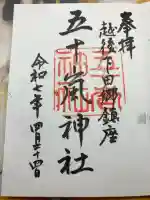 奉拝
越後下田郷鎮座
五十嵐神社
令和七年四月二十四日